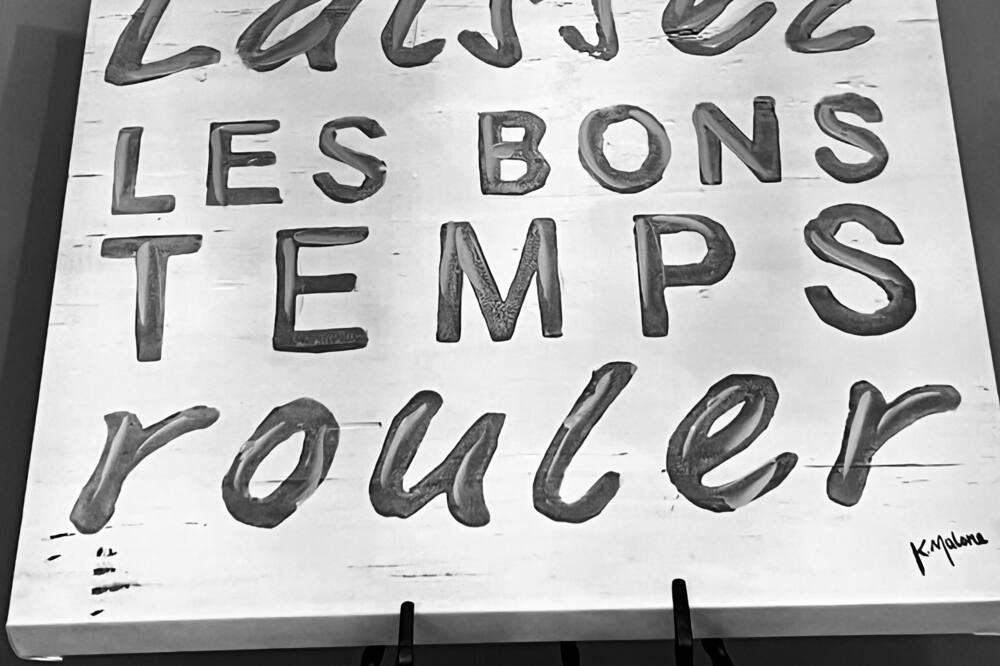 Laissez
LES BONS
TEMPS
rouler
K. Malone